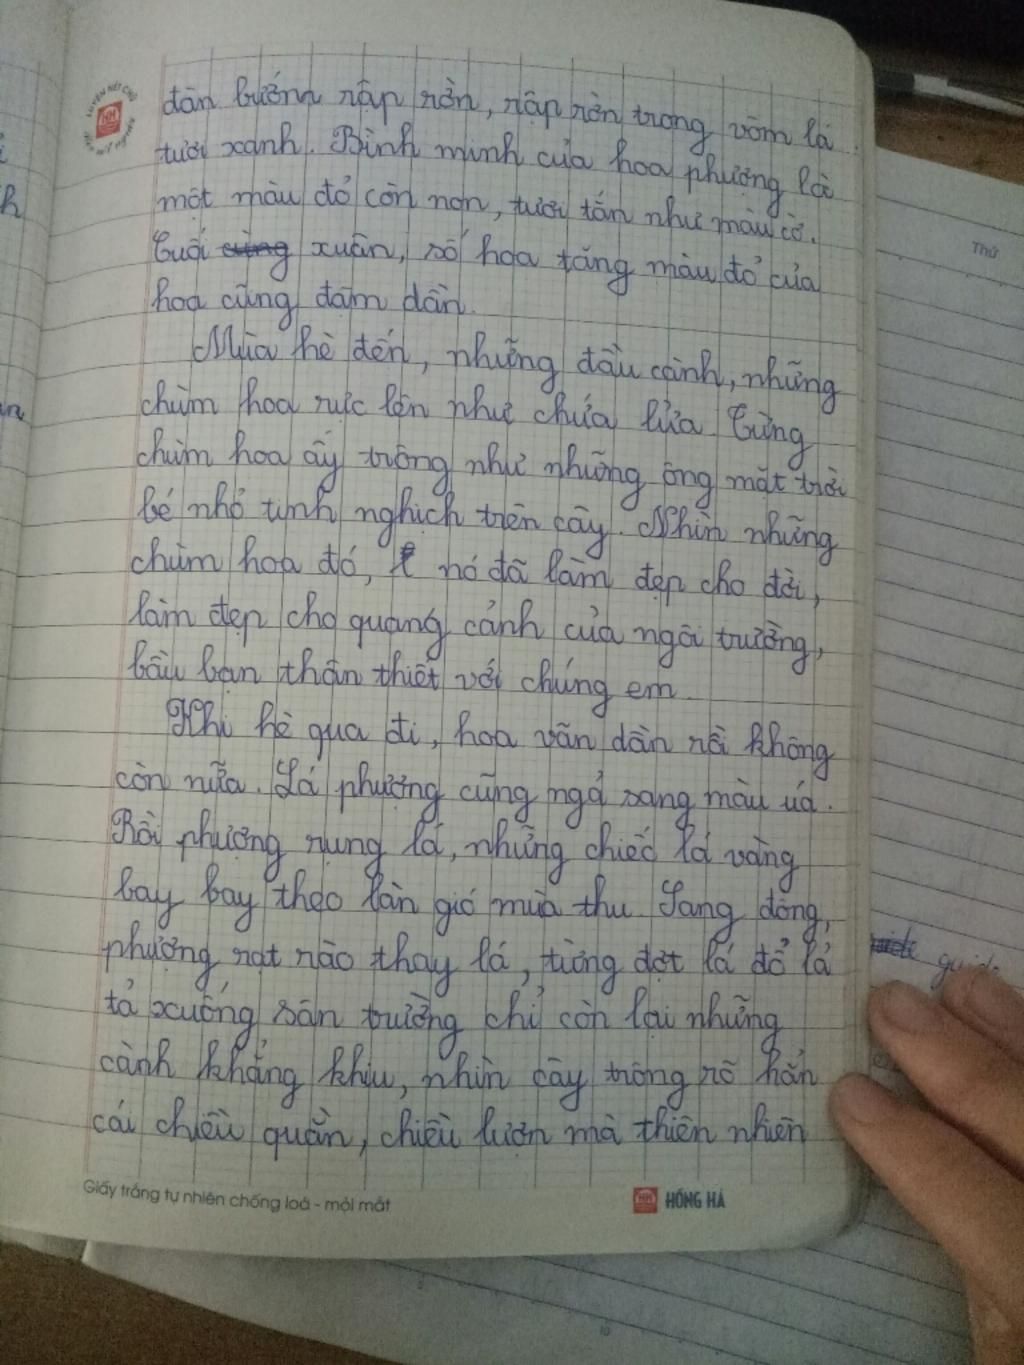 đàn bướm rập rờn, rập rờn trong vòm lá
tươi xanh. Bình minh của hoa phượng là
một màu đỏ còn non, tươi tắn như màu cờ.
Cuối cùng xuân, số hoa tăng màu đỏ của
hoa cũng đậm dần.
Mùa hè đến, những đầu cành, những
chùm hoa rực lên như chứa lửa. Từng
chùm hoa ấy trông như những ông mặt trời
bé nhỏ tinh nghịch trên cây. Nhìn những
chùm hoa đó, nó đã làm đẹp cho đời,
làm đẹp cho quang cảnh của ngôi trường,
bầu bạn thân thiết với chúng em.
Khi hè qua đi, hoa vãn dần rồi không
còn nữa. Lá phượng cũng ngả sang màu úa.
Rồi phượng rụng lá, những chiếc lá vàng
bay bay theo làn gió mùa thu. Sang đông,
phượng rạt rào thay lá, từng đợt lá đổ lả
tả xuống sân trường chỉ còn lại những
cành khẳng khiu, nhìn cây trông rõ hẳn
cái chiều quằn, chiều lượn mà thiên nhiên
Giấy trắng tự nhiên chống loá - mỏi mắt
HỒNG HÀ
Thứ
guide